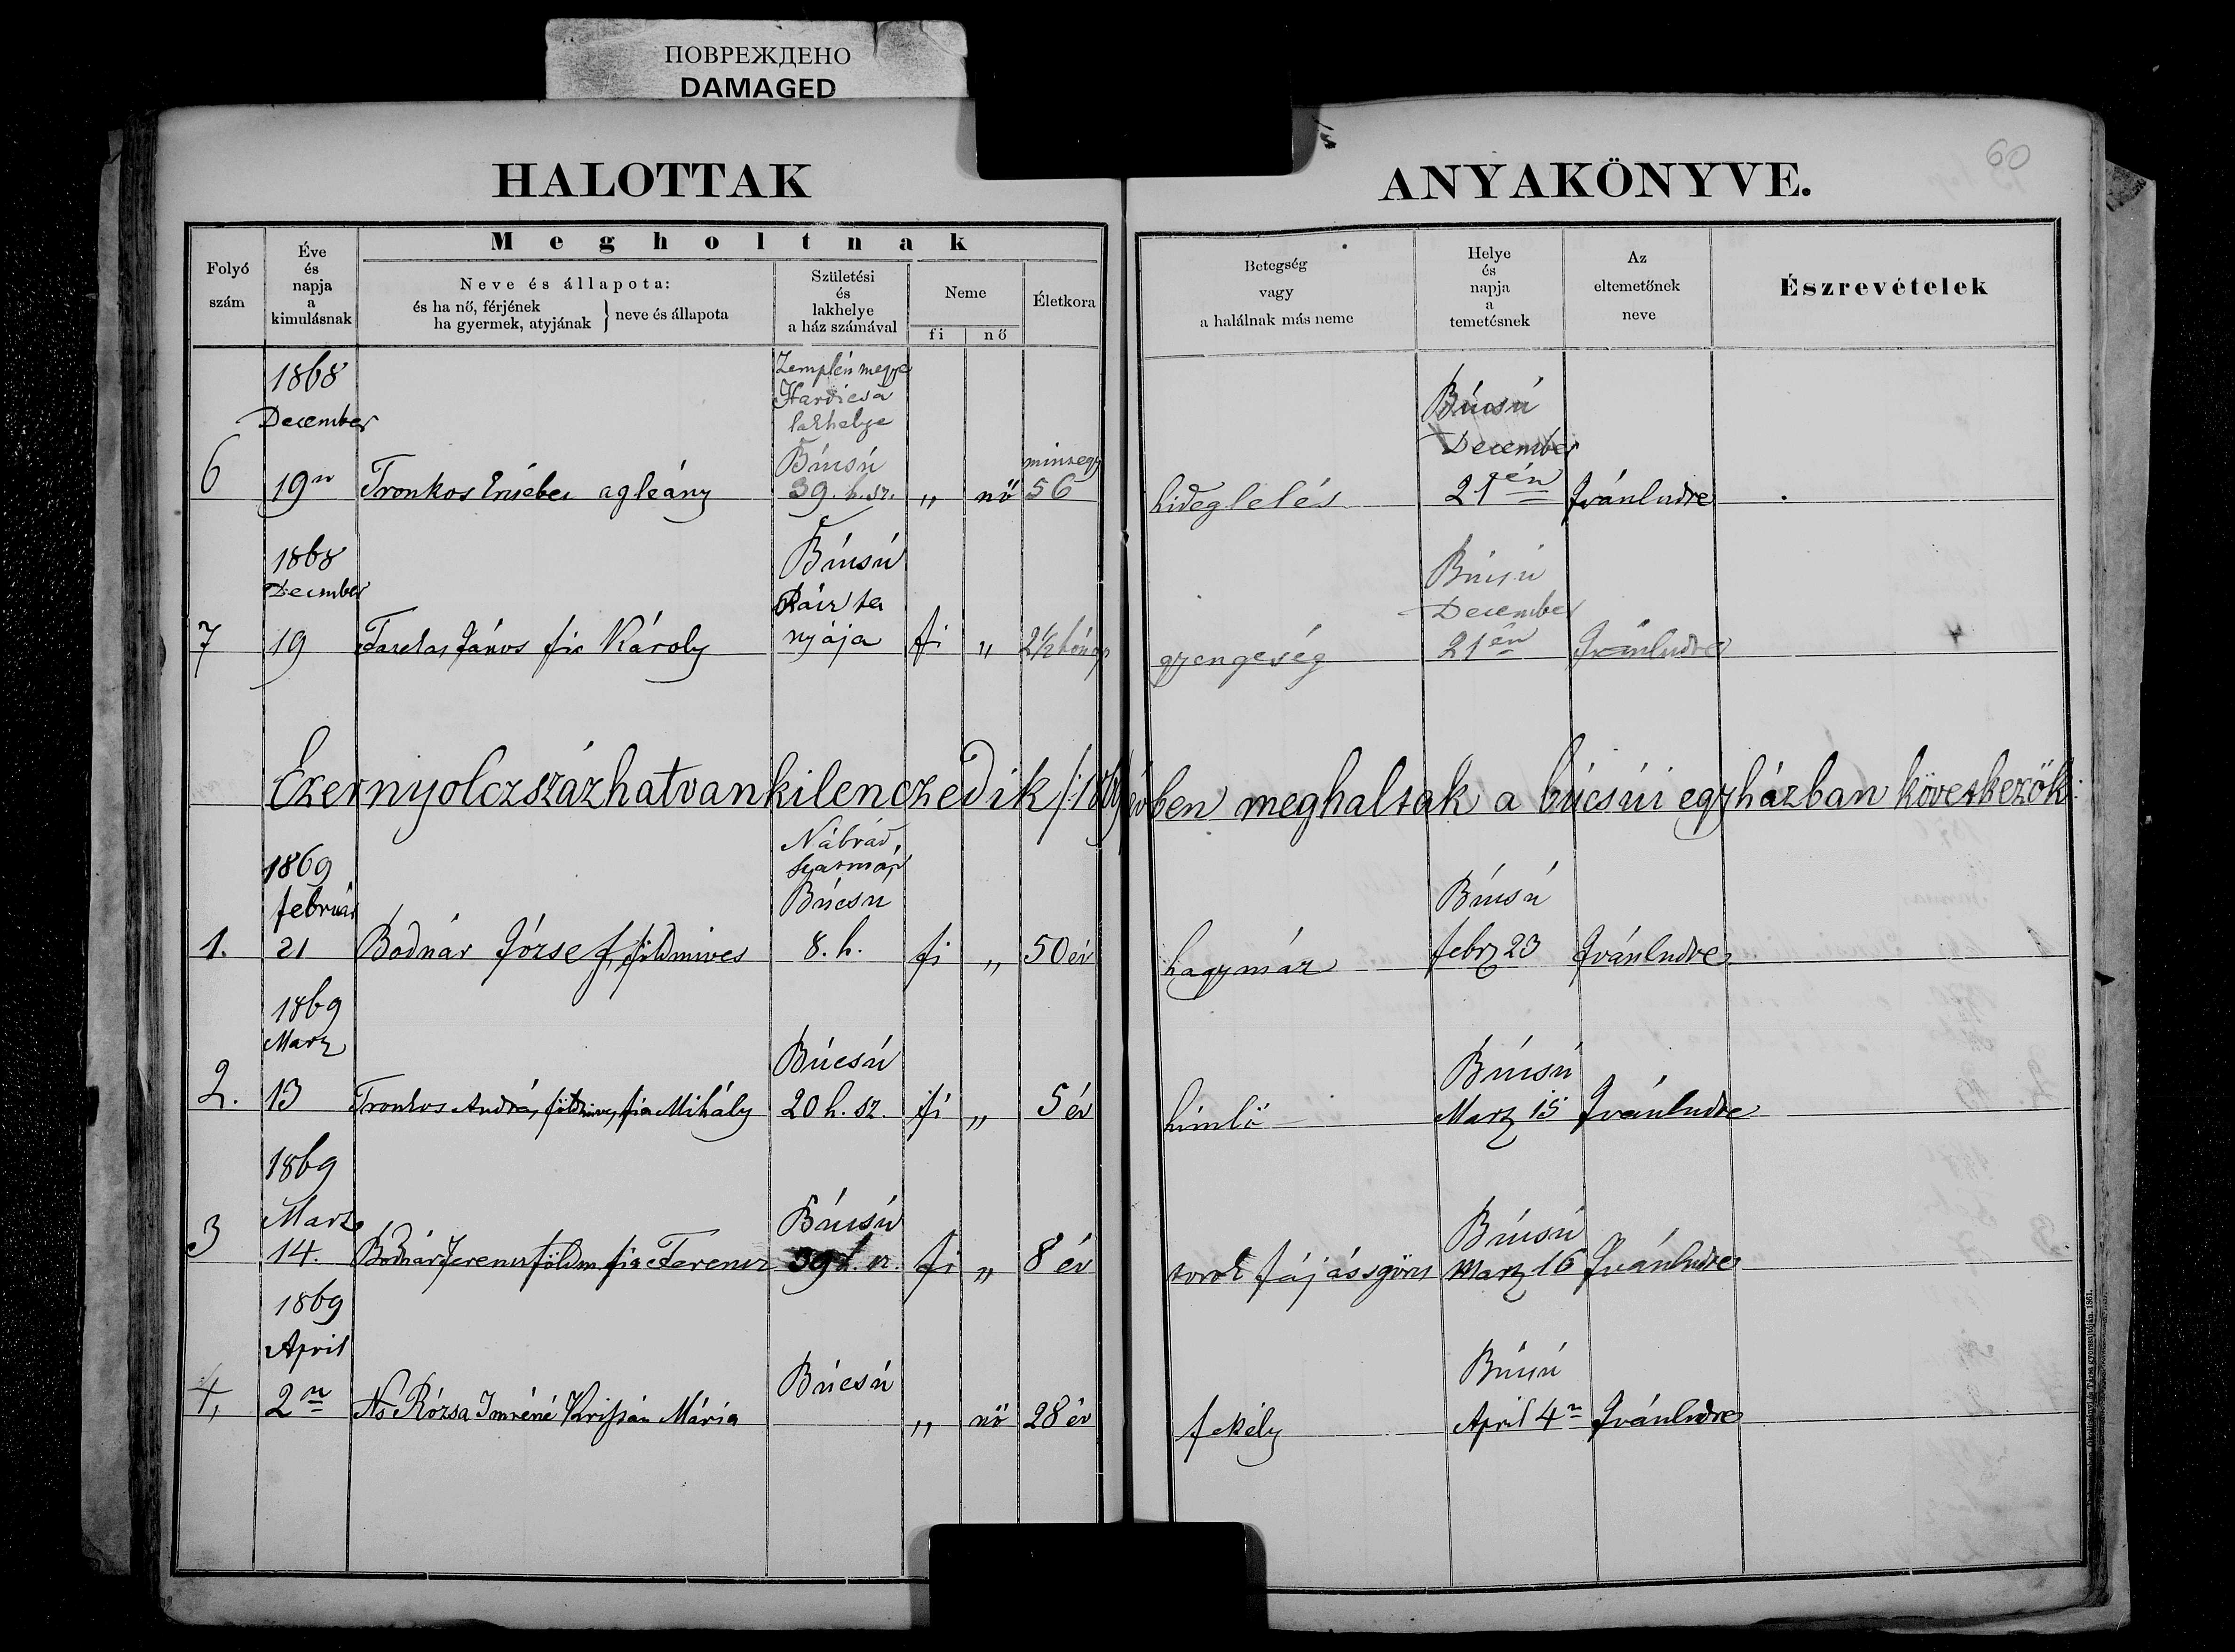 ПОВРЕЖДЕНО
DAMAGED
60
HALOTTAK ANYAKÖNYVE.
Folyó szám
Éve és napja a kimulásnak
Megholtnak
Neve és állapota:
és ha nő, férjének
ha gyermek, atyjának } neve és állapota
Születési és lakhelye a ház számával
Neme
fi
nő
Életkora
Betegség vagy a halálnak más neme
Helye és napja a temetésnek
Az eltemetőnek neve
Észrevételek
6
1868
December
19n
Tronkos Ersébet agleány
Zemplén megye
Hardicsa
lakhelye
Búcsú
39. h. sz.
„ nő
mintegy
56
hideglelés
Búcsú
December
21én
Ivánludre
7
1868
December
19
János fia Károly
Búcsú
Rácz ta
nyája
fi „
2 1/2 hónap
gyengeség
Búcsú
December
21én
Ivánludre
Ezernyolczszázhatvankilenczedik /:1869/ évben meghaltak a búcsúi egyházban következök:
1.
1869
február
21
Bodnár József, földmives
Nábrád,
Szatmár
Búcsú
8. h.
fi „
50 év
hagymáz
Búcsú
febr 23
Ivánludre
2.
1869
Marz
13
Tronkos András földmives fia Mihály
Búcsú
20 h. sz.
fi „
5 év
himlö
Búcsú
Marz 15
Ivánludre
3
1869
Marz
14.
Bodnár Ferencz földm. fia Ferencz
Búcsú
39 h. sz.
fi „
8 év
torok fájás görcs
Búcsú
Marz 16
Ivánludre
4,
1869
April
2n
Ns Rózsa Imréné Mária
Búcsú
„ nö
28 év
fekély
Búcsú
April 4n
Ivánludre